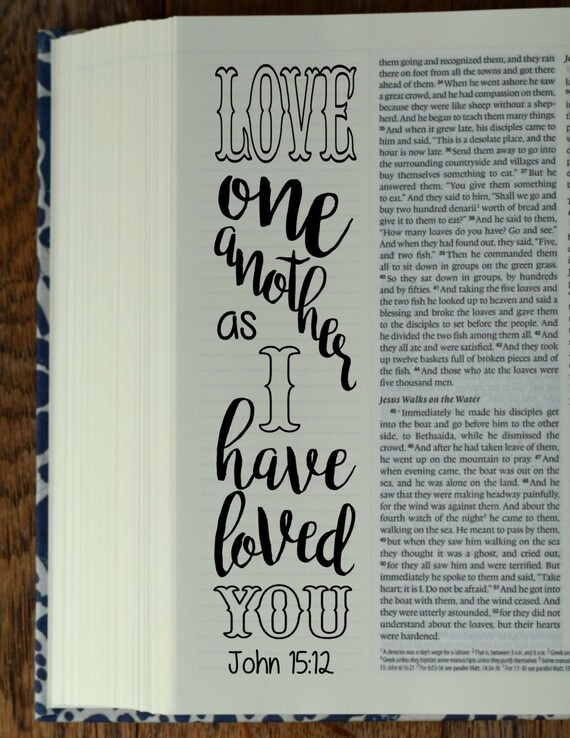 LOVE
one
another
as
I
have
loved
YOU
John 15:12
them going and recognized them, and they ran
there on foot from all the towns and got there
ahead of them. 34 When he went ashore he saw
a great crowd, and he had compassion on them,
because they were like sheep without a shep-
herd. And he began to teach them many things.
35 And when it grew late, his disciples came to
him and said, "This is a desolate place, and the
hour is now late. 36 Send them away to go into
the surrounding countryside and villages and
buy themselves something to eat." 37 But he
answered them, "You give them something
to eat." And they said to him, "Shall we go and
buy two hundred denarii1 worth of bread and
give it to them to eat?" 38 And he said to them,
"How many loaves do you have? Go and see."
And when they had found out, they said, "Five,
and two fish." 39 Then he commanded them
all to sit down in groups on the green grass.
40 So they sat down in groups, by hundreds
and by fifties. 41 And taking the five loaves and
the two fish he looked up to heaven and said a
blessing and broke the loaves and gave them
to the disciples to set before the people. And
he divided the two fish among them all. 42 And
they all ate and were satisfied. 43 And they took
up twelve baskets full of broken pieces and of
the fish. 44 And those who ate the loaves were
five thousand men.
Jesus Walks on the Water
45 Immediately he made his disciples get
into the boat and go before him to the other
side, to Bethsaida, while he dismissed the
crowd. 46 And after he had taken leave of them,
he went up on the mountain to pray. 47 And
when evening came, the boat was out on the
sea, and he was alone on the land. 48 And he
saw that they were making headway painfully,
for the wind was against them. And about the
fourth watch of the night2 he came to them,
walking on the sea. He meant to pass by them,
49 but when they saw him walking on the sea
they thought it was a ghost, and cried out,
50 for they all saw him and were terrified. But
immediately he spoke to them and said, "Take
heart; it is I. Do not be afraid." 51 And he got into
the boat with them, and the wind ceased. And
they were utterly astounded, 52 for they did not
understand about the loaves, but their hearts
were hardened.
1 A denarius was a day's wage for a laborer 2 That is, between 3 A.M. and 6 A.M.